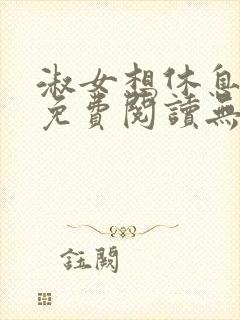 淑女想休息
免費閱讀無
註闕